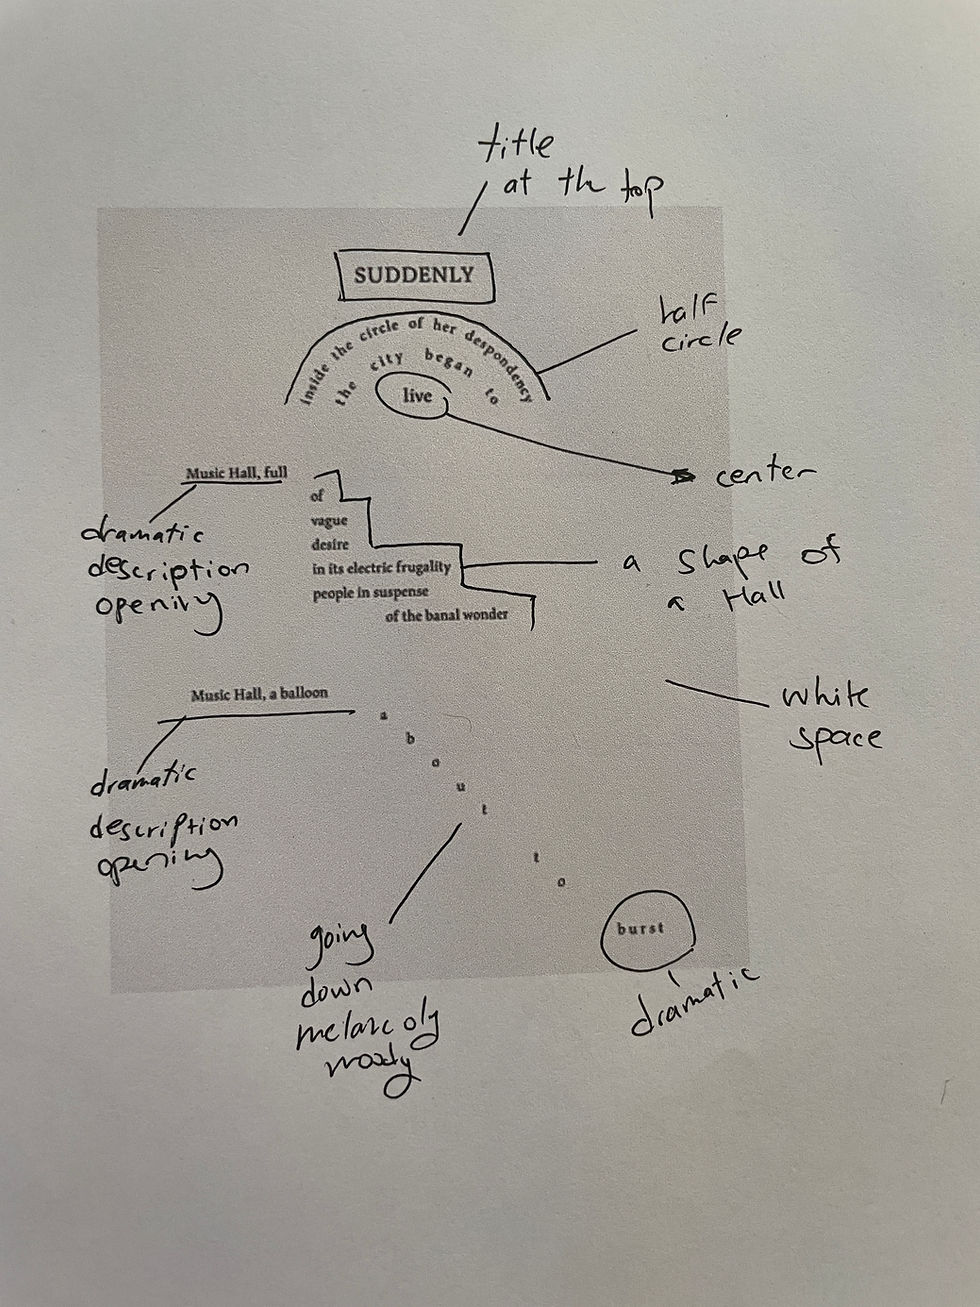 title
at the top
SUDDENLY
inside the circle of her despondency
the city began to
live
half
circle
center
Music Hall, full
of
vague
desire
in its electric frugality
people in suspense
of the banal wonder
dramatic
description
opening
a shape of
a Hall
white
space
Music Hall, a balloon
a
b
o
u
t
t
o
burst
dramatic
description
opening
going
down
melancoly
moody
dramatic